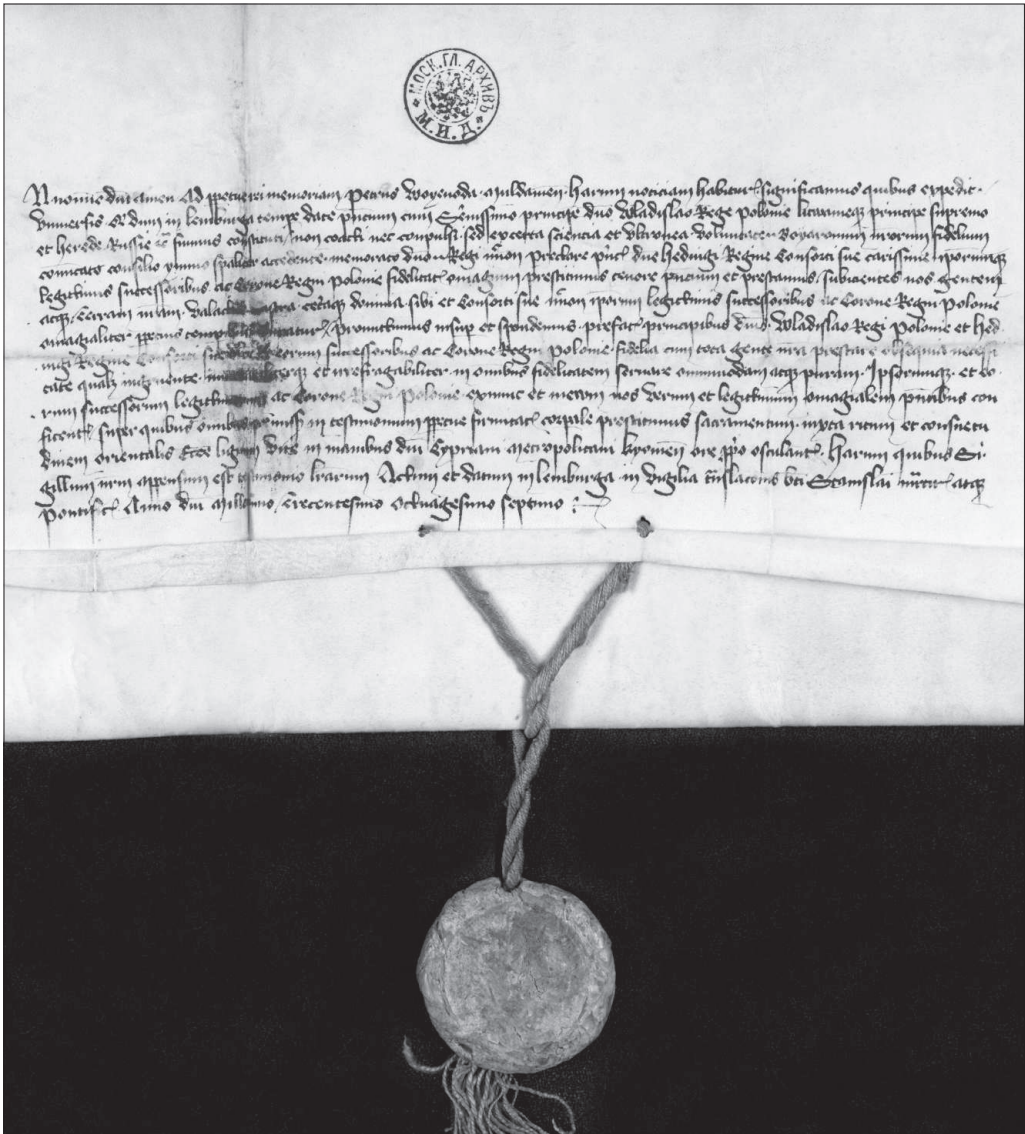 МОСК. ГЛ. АРХИВЪ
М. И. Д.
N nomine dni amen Ad ppetuam rei memoriam Petrus Woyevoda Muldamen. harum noticiam habitur. significamus quibus expedit.
Vniversis Q dum in lemburga tempe date pncium cum Serenissimo principe dno Wladislao Rege Polonie litwanieq principe supremo
et herede Russie &c simus constituti, non coacti nec conpulsi sed ex certa sciencia et vltronea voluntate Boyaronum nrorum fidelium
comunicato consilio ymmo spaliter accedente memorato dno Regi nec non preclare princ dne Hedwigi Regine Consorti sue carissime iporumq
legitimis successoribus ac Corone Regni Polonie fidelitat omagium prestitimus tenore pncium et prestamus, subicientes nos gentem
atq terram nram Valach castra ceteraq dominia sibi et Consorti sue nec non iporum legitimis successoribus ac Corone Regni Polonie
omagialiter ppetuis Promittimus insup et spondemus prefat principibus dnis Wladislao Regi Polonie et Hed
wigi Regine Consorti sue eorum successoribus ac Corone Regni Polonie fidelia cum tota gente nra prestare obsequia necessi
tate qualz ingruente et irrefragabiliter in omnibus fidelitatem servare omnimodam atq puram. Ipsorumq et eo
rum successorum legitimorum ac Corone Regni Polonie exnunc et meram nos verum et legitimum omagialem pntibus con
ficent super quibus omnibus in testimonium ppetue firmitat corpale prestitimus sacramentum iuxta ritum et consuetu
dinem orientalis Ecce lignum vite in manibus dni Cypriani Metropolitani kyovien ore pprio osculant. Harum quibus Si
gillum nrm appensum est testimonio lrarum Actum et datum in lemburga in vigilia translacionis bti Stanislai mrtir atq
pontific Anno dni Millesimo, Trecentesimo Octuagesimo septimo